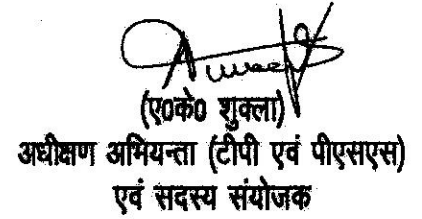 (ए0के0 शुक्ला)
अधीक्षण अभियन्ता (टीपी एवं पीएसएस)
एवं सदस्य संयोजक